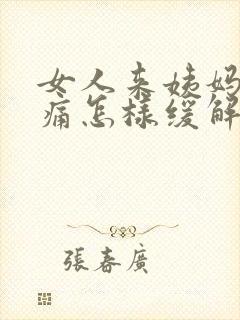 女人来姨妈
痛怎样缓解
張春廣